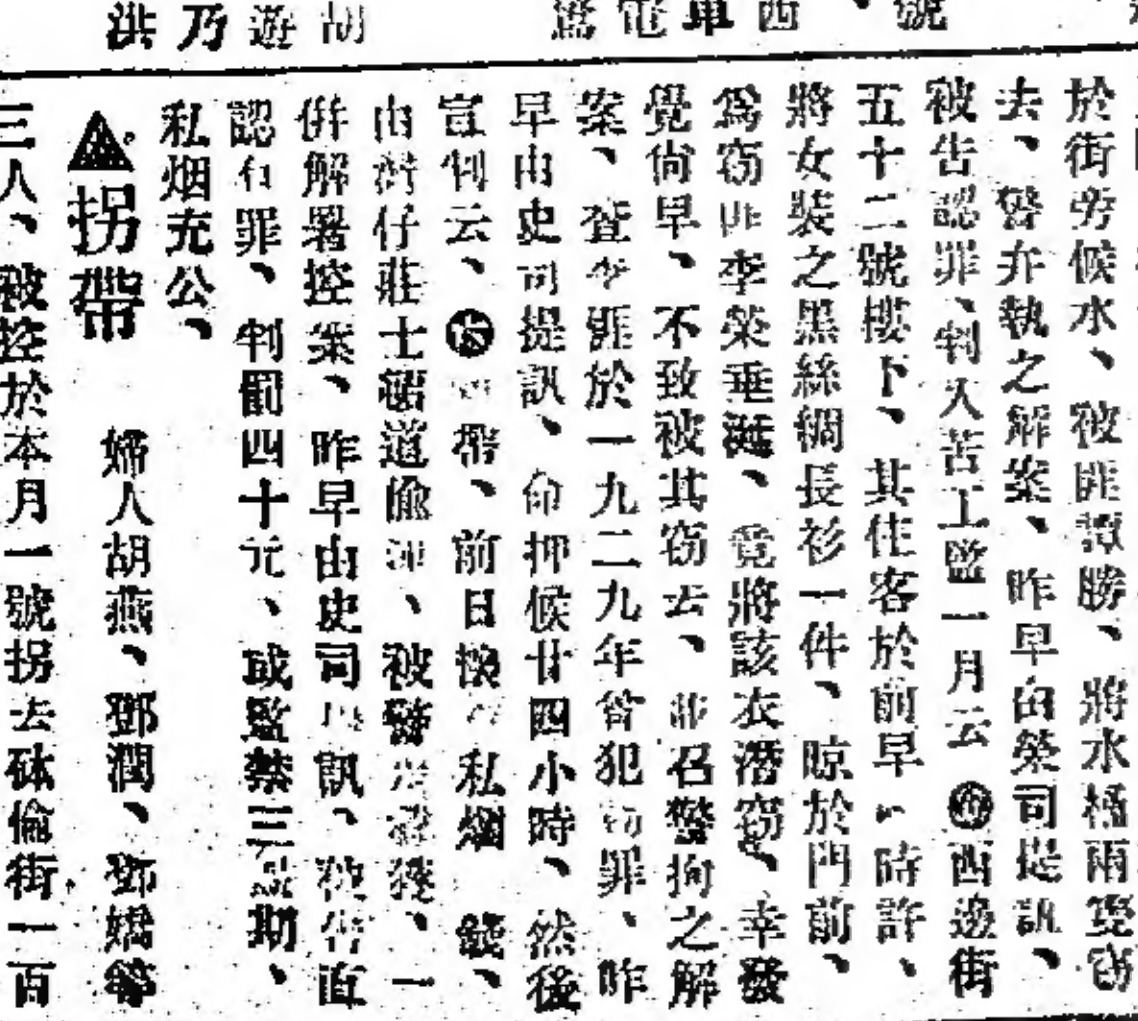 胡遊乃洪
於街旁候水、被匪譚勝、將水桶兩隻竊
去、警弁執之解案、昨早由榮司提訊、
被告認罪、判入苦工監一月云 西邊街
五十二號樓下、其住客於前早 時許、
將女裝之黑絲綢長衫一件、晾於門前、
爲窃匪李榮垂涎、竟將該衣潛窃、幸發
覺尙早、不致被其窃去、 召警拘之解
案、查李匪於一九二九年曾犯窃罪、昨
早由史司提訊、命押候廿四小時、然後
宣判云、 前日懷 私烟
由灣仔莊士頓道偷 、被警 獲、一
併解署控案、昨早由史司 訊、被告直
認有罪、判罰四十元、或監禁三 期、
私烟充公、
▲拐帶 婦人胡燕、鄧潤、鄧嬌等
三人、被控於本月一號拐去砵倫街一百